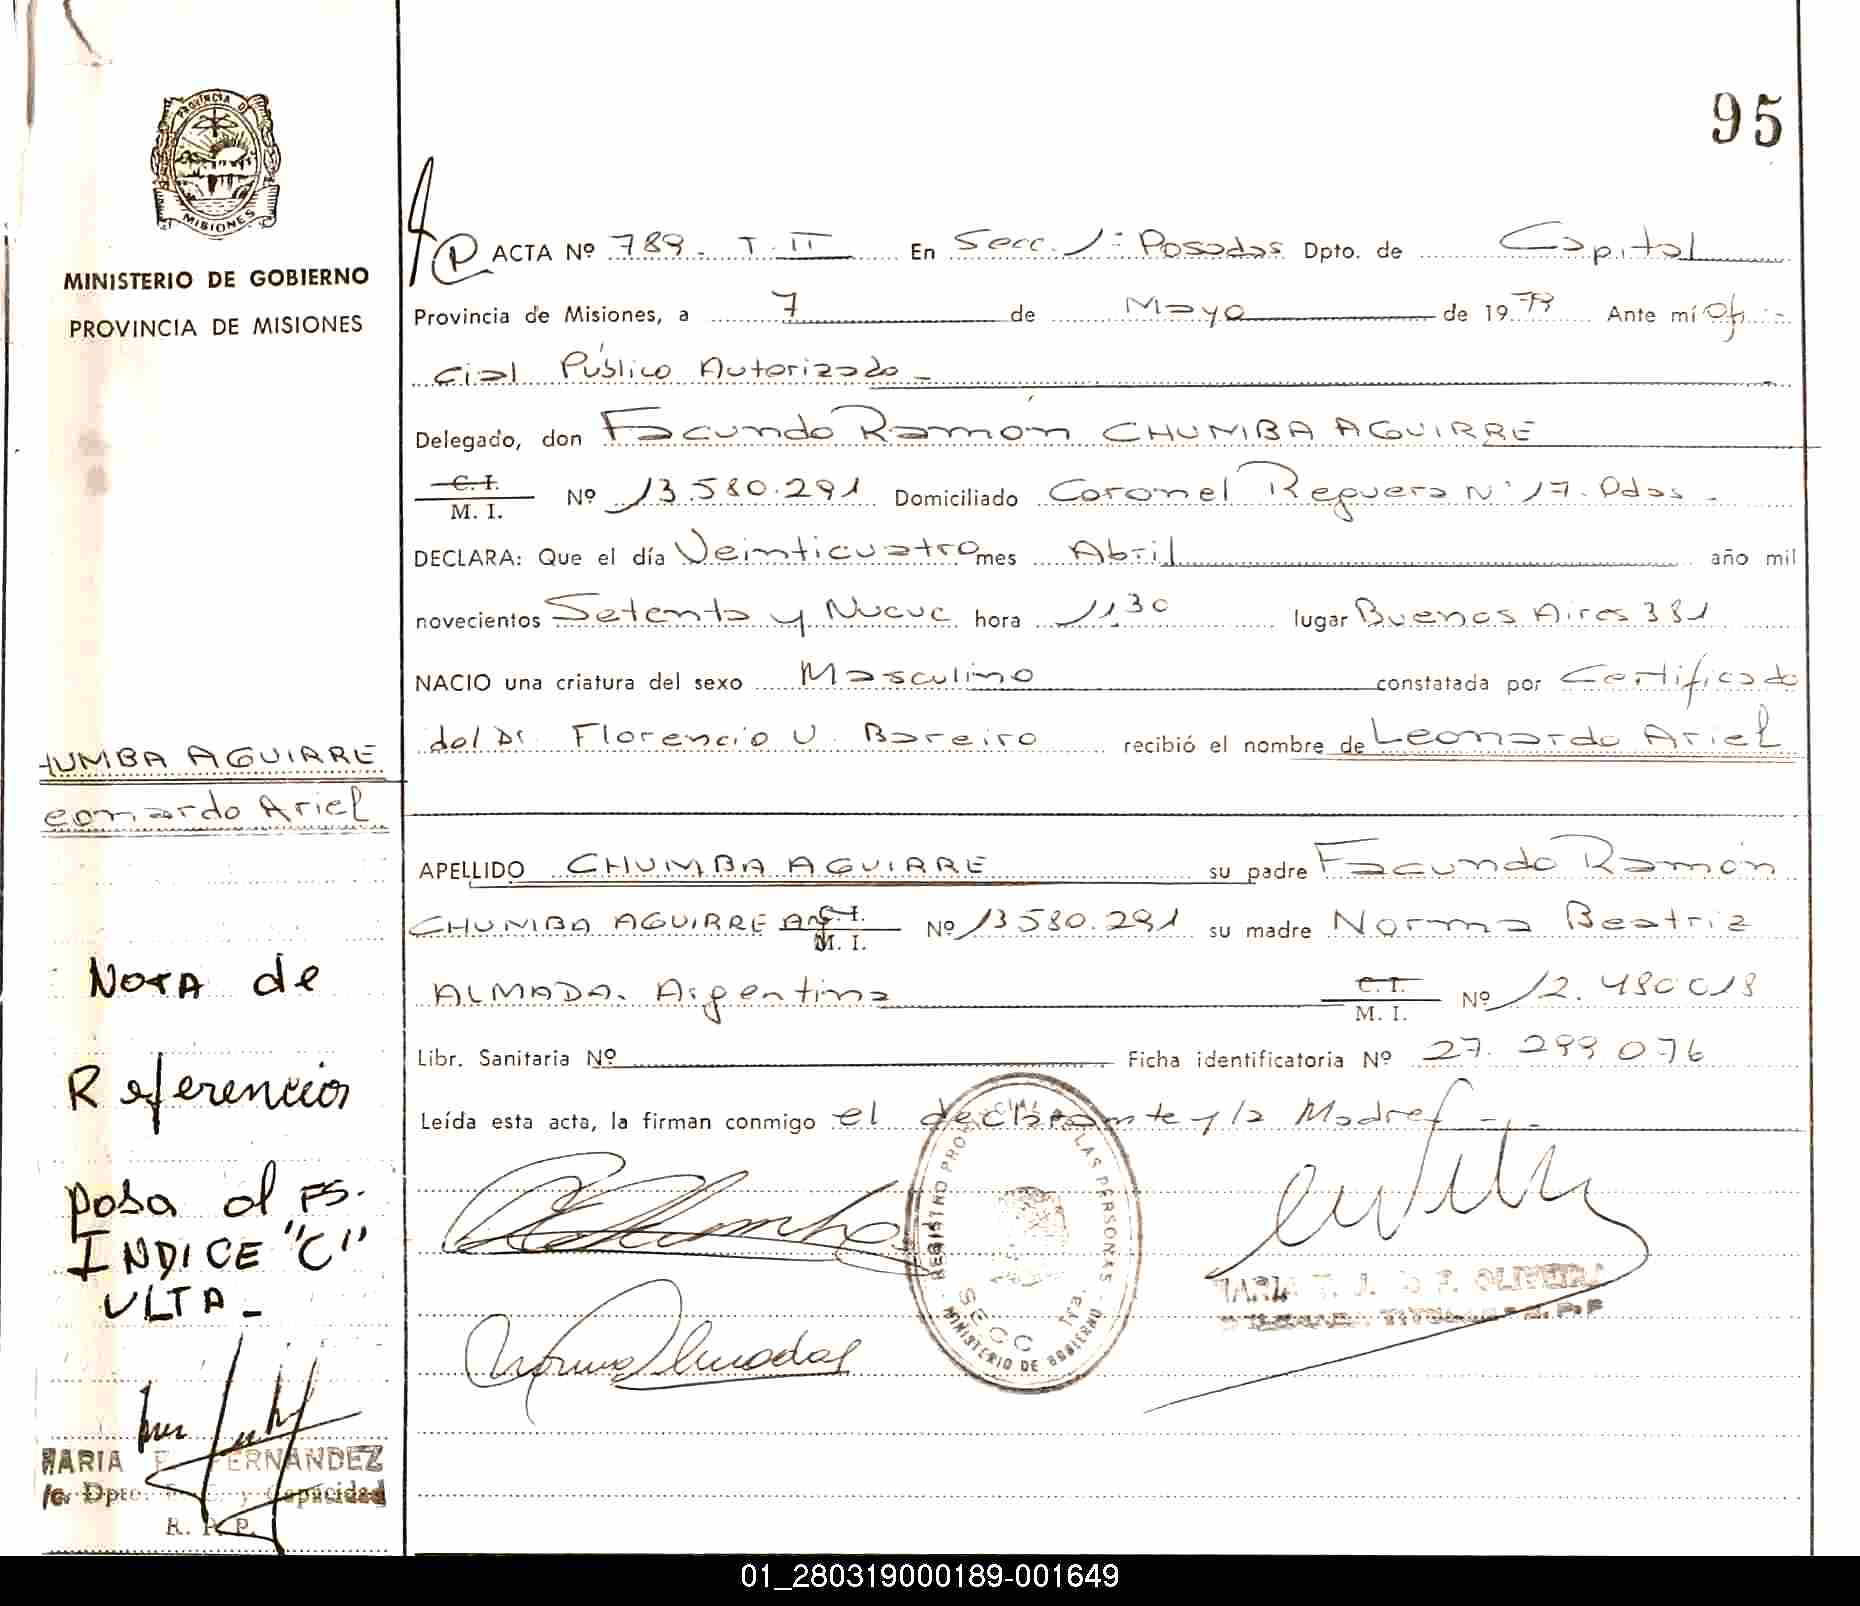 95
PROVINCIA DE
MISIONES
MINISTERIO DE GOBIERNO
PROVINCIA DE MISIONES
HUMBA AGUIRRE
eonardo Ariel
NOTA de
Referencias
pasa al FS.
INDICE "C"
ULTA -
MARIA F. FERNANDEZ
/c. Dpto. E. C. y Capacidad
R. P. P.
P ACTA Nº 789 - T. II En Secc. 1ª Posadas Dpto. de Capital
Provincia de Misiones, a 7 de Mayo de 1979 Ante mí Ofi-
cial Público Autorizado -
Delegado, don Facundo Ramón CHUMBA AGUIRRE
C. I.
M. I. Nº 13.580.291 Domiciliado Coronel Reguera Nº 17. Pdas -
DECLARA: Que el día Veinticuatro mes Abril año mil
novecientos Setenta y Nueve hora 11,30 lugar Buenos Aires 381
NACIO una criatura del sexo Masculino constatada por Certificado
del Dr. Florencio V. Bareiro recibió el nombre de Leonardo Ariel
APELLIDO CHUMBA AGUIRRE su padre Facundo Ramón
CHUMBA AGUIRRE Arg. C. I.
M. I. Nº 13.580.291 su madre Norma Beatriz
ALMADA. Argentina C. I.
M. I. Nº 12.480018
Libr. Sanitaria Nº Ficha identificatoria Nº 27.299.076
Leída esta acta, la firman conmigo el declarante y la Madre -
REGISTRO PROVINCIAL DE LAS PERSONAS
SECC 1ra.
MINISTERIO DE GOBIERNO
OLIVEIRA
01_280319000189-001649